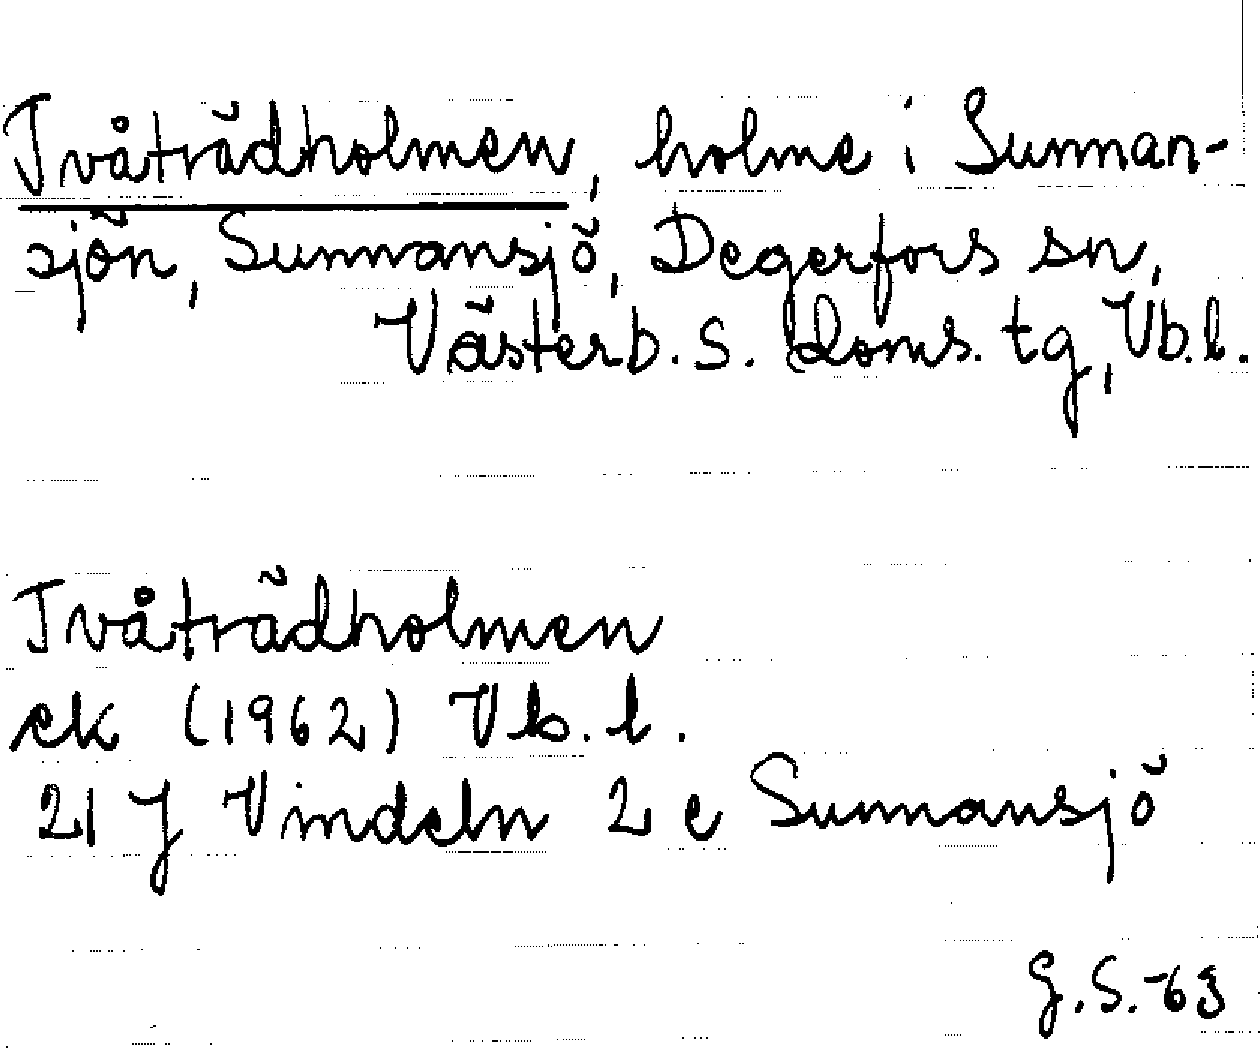 Tvåträdholmen, holme i Sunnan-
sjön, Sunnansjö, Degerfors sn,
Västerb. S. doms. tg, Vb. l.
Tvåträdholmen
ek (1962) Vb. l.
21 J Vindeln 2 e Sunnansjö
G. S. -63